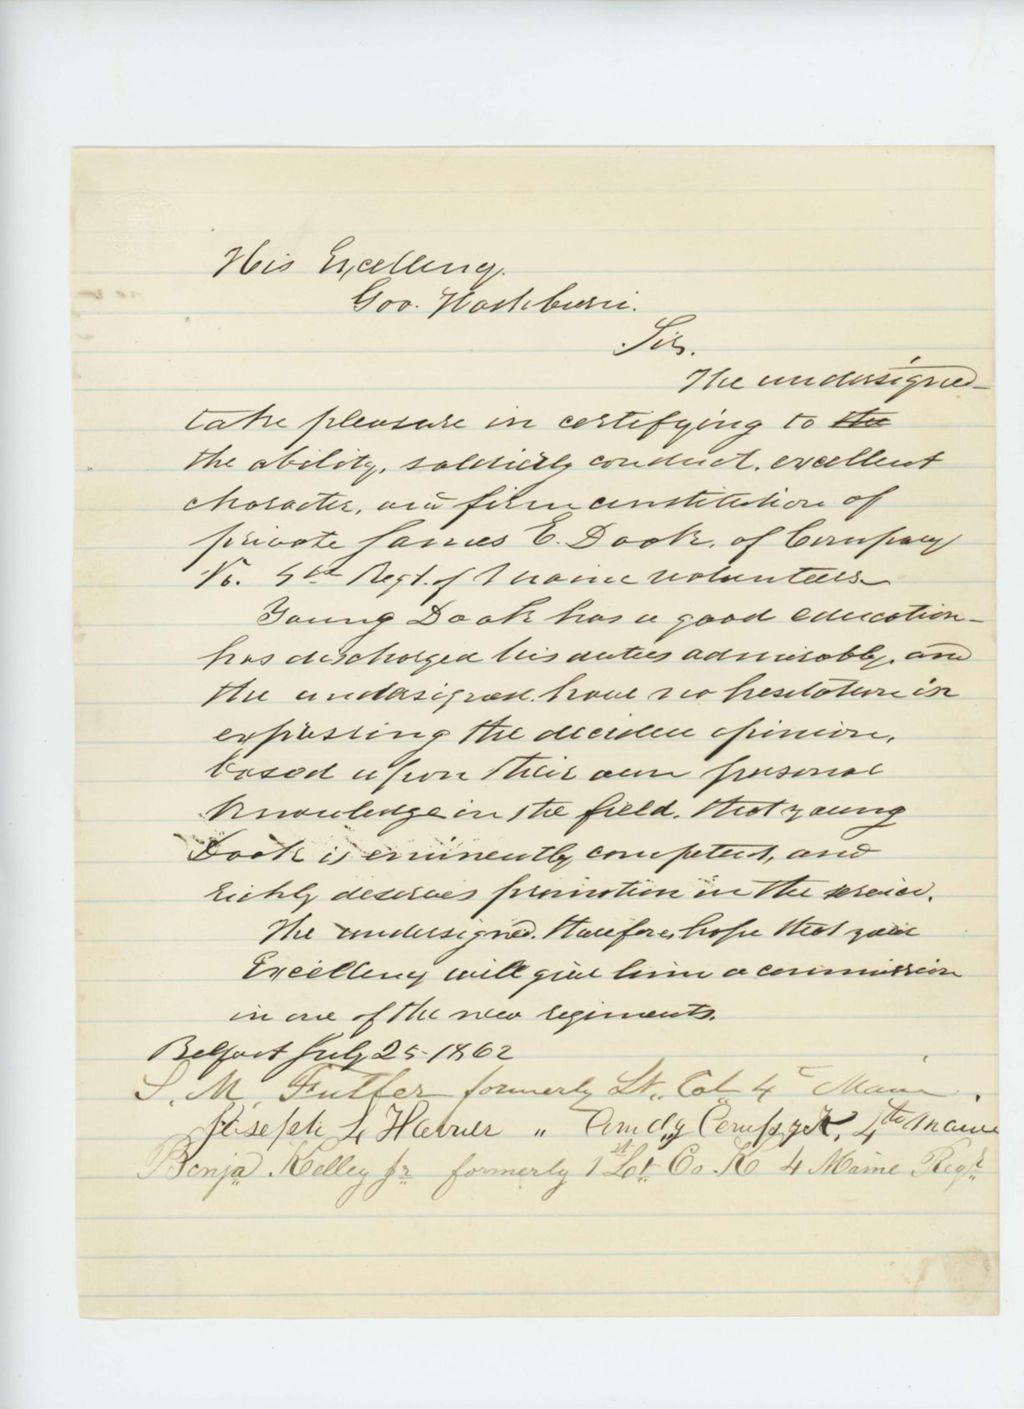 His Excellency.
Gov. Washburn.
Sir.
The undersigned
take pleasure in certifying to the
the ability, soldierly conduct, excellent
character, and firm constitution of
private James E. Doak, of Company
K. 4th Regt. of Maine volunteers
Young Doak has a good education
has discharged his duties admirably, and
the undersigned have no hesitation in
expressing the decided opinion,
based upon their own personal
knowledge in the field, that young
Doak is eminently competent, and
richly deserves promotion in the service.
The undersigned, therefore, hope that your
Excellency will give him a commission
in one of the new regiments.
Belfast July 25 1862
S. M. Fuller formerly Lt. Col. 4th Maine.
Joseph L Havner " Comdg Company K, 4th Maine
Benja Kelley Jr formerly 1st Lt. Co. K 4 Maine Regt